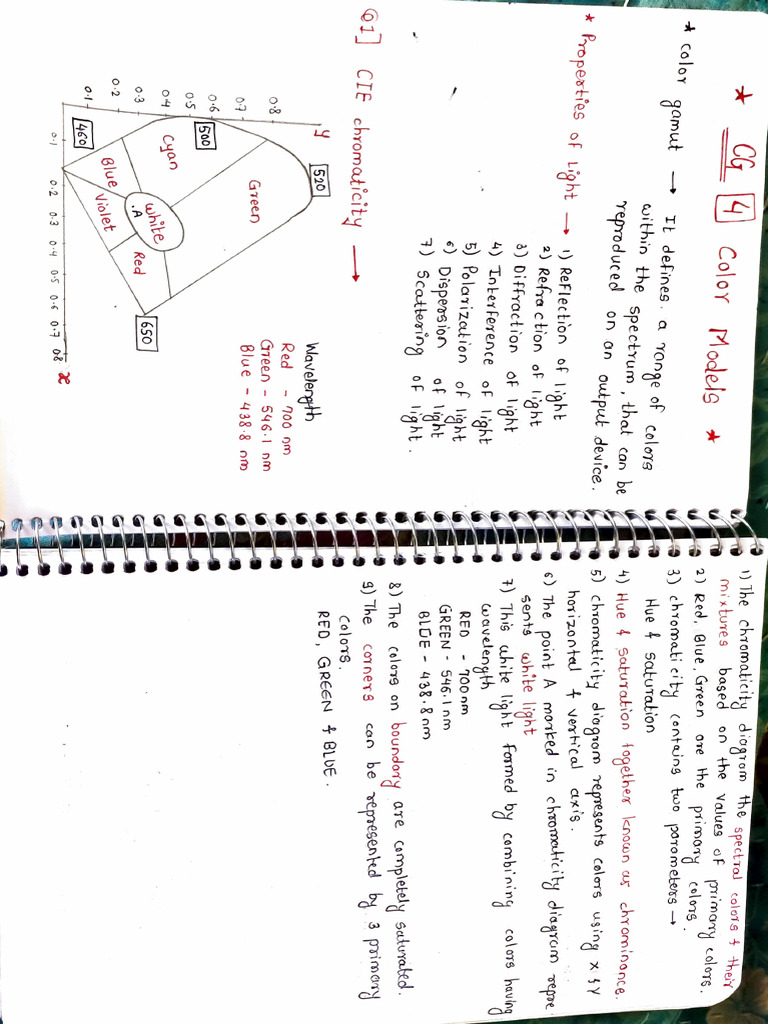 ★ CG 4 Color Models ★
★ color gamut → It defines a range of colors
within the spectrum, that can be
reproduced on an output device.
★ Properties of Light → 1) Reflection of light
2) Refraction of light
3) Diffraction of light
4) Interference of light
5) Polarization of light
6) Dispersion of light
7) Scattering of light.
Q1] CIE chromaticity →
y
0.8
0.7
0.6
0.5
0.4
0.3
0.2
0.1
520
500
460
650
Green
Cyan
White
.A
Blue
Violet
Red
0.1 0.2 0.3 0.4 0.5 0.6 0.7 0.8
x
Wavelength
Red - 700 nm
Green - 546.1 nm
Blue - 438.8 nm
1) The chromaticity diagram the spectral colors & their
mixtures based on the values of primary colors.
2) Red, Blue, Green are the primary colors.
3) chromaticity contains two parameters →
Hue & saturation
4) Hue & saturation together known as chrominance.
5) chromaticity diagram represents colors using x & y
horizontal & vertical axis.
6) The point A marked in chromaticity diagram repre-
sents white light
7) This white light formed by combining colors having
wavelength
RED - 700 nm
GREEN - 546.1 nm
BLUE - 438.8 nm
8) The colors on boundary are completely saturated.
9) The corners can be represented by 3 primary
colors.
RED, GREEN & BLUE.